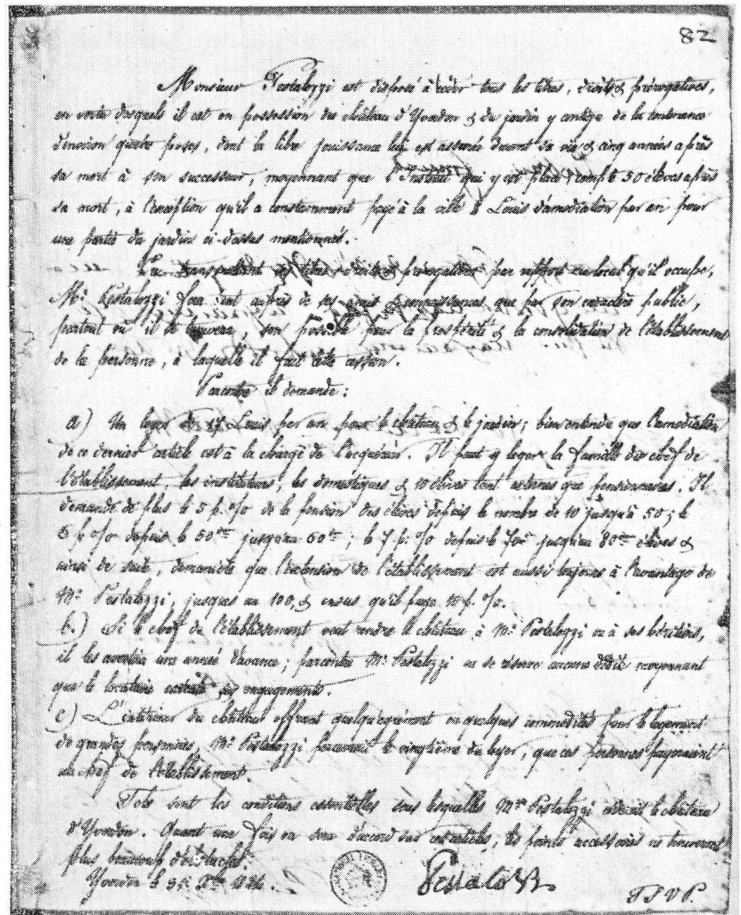 82
Monsieur Pestalozzi est disposé à céder tous les titres, droits & prérogatives,
en vertu desquels il est en possession du château d'Yverdon & du jardin y contigu de la contenance
d'environ quatre poses, dont la libre jouissance lui est assurée durant sa vie & cinq années après
sa mort à son successeur, moyennant que l'Institut qui y est placé compte 50 élèves après
sa mort, à l'exception qu'il a constamment payé à la ville Louis d'amodiation par an pour
une partie du jardin ci-dessus mentionné.
En transportant ses titres droits & prérogatives par rapport au local qu'il occupe,
Mr. Pestalozzi fera tant auprès de ses amis & connaissances que par son caractère public,
partout où il le trouvera, son possible pour la prospérité & la consolidation de l'établissement
de la personne, à laquelle il fait cette cession.
Parcontre il demande :
a) Un loyer de Louis par an pour le château & le jardin ; bien entendu que l'amodiation
de ce dernier article est à la charge de l'acquéreur. Il peut y loger la famille du chef de
l'établissement, les instituteurs, les domestiques & élèves tant externes que pensionnaires. Il
demande de plus le 5 p. % de la pension des élèves depuis le nombre de 10 jusqu'à 50 ; le
6 p. % depuis le 50me jusqu'au 60me ; le 7 p. % depuis le jusqu'au 80me élèves &
ainsi de suite, demanière que l'extension de l'établissement est aussi toujours à l'avantage de
Mr. Pestalozzi, jusques au 100, & ensus qu'il paye 10 p. %.
b.) Si le chef de l'établissement veut rendre le château à Mr. Pestalozzi ou à ses héritiers,
il les avertira une année d'avance ; parcontre Mr. Pestalozzi ne se réserve aucun dédit moyennant
que le locataire ses engagements.
c) L'extérieur du château offrant quelqu'agrément ou quelques commodités pour le logement
de grandes personnes, Mr. Pestalozzi percevrait le vingtième du loyer, que ces personnes payeraient
au chef de l'établissement.
Tels sont les conditions essentielles sous lesquelles Mr. Pestalozzi céderait le château
d'Yverdon. Quant une fois on sera d'accord sur ces articles, les points accessoires ne trouveront
plus beaucoup d'obstacles.
Yverdon le
Pestalozzi
T S V P.